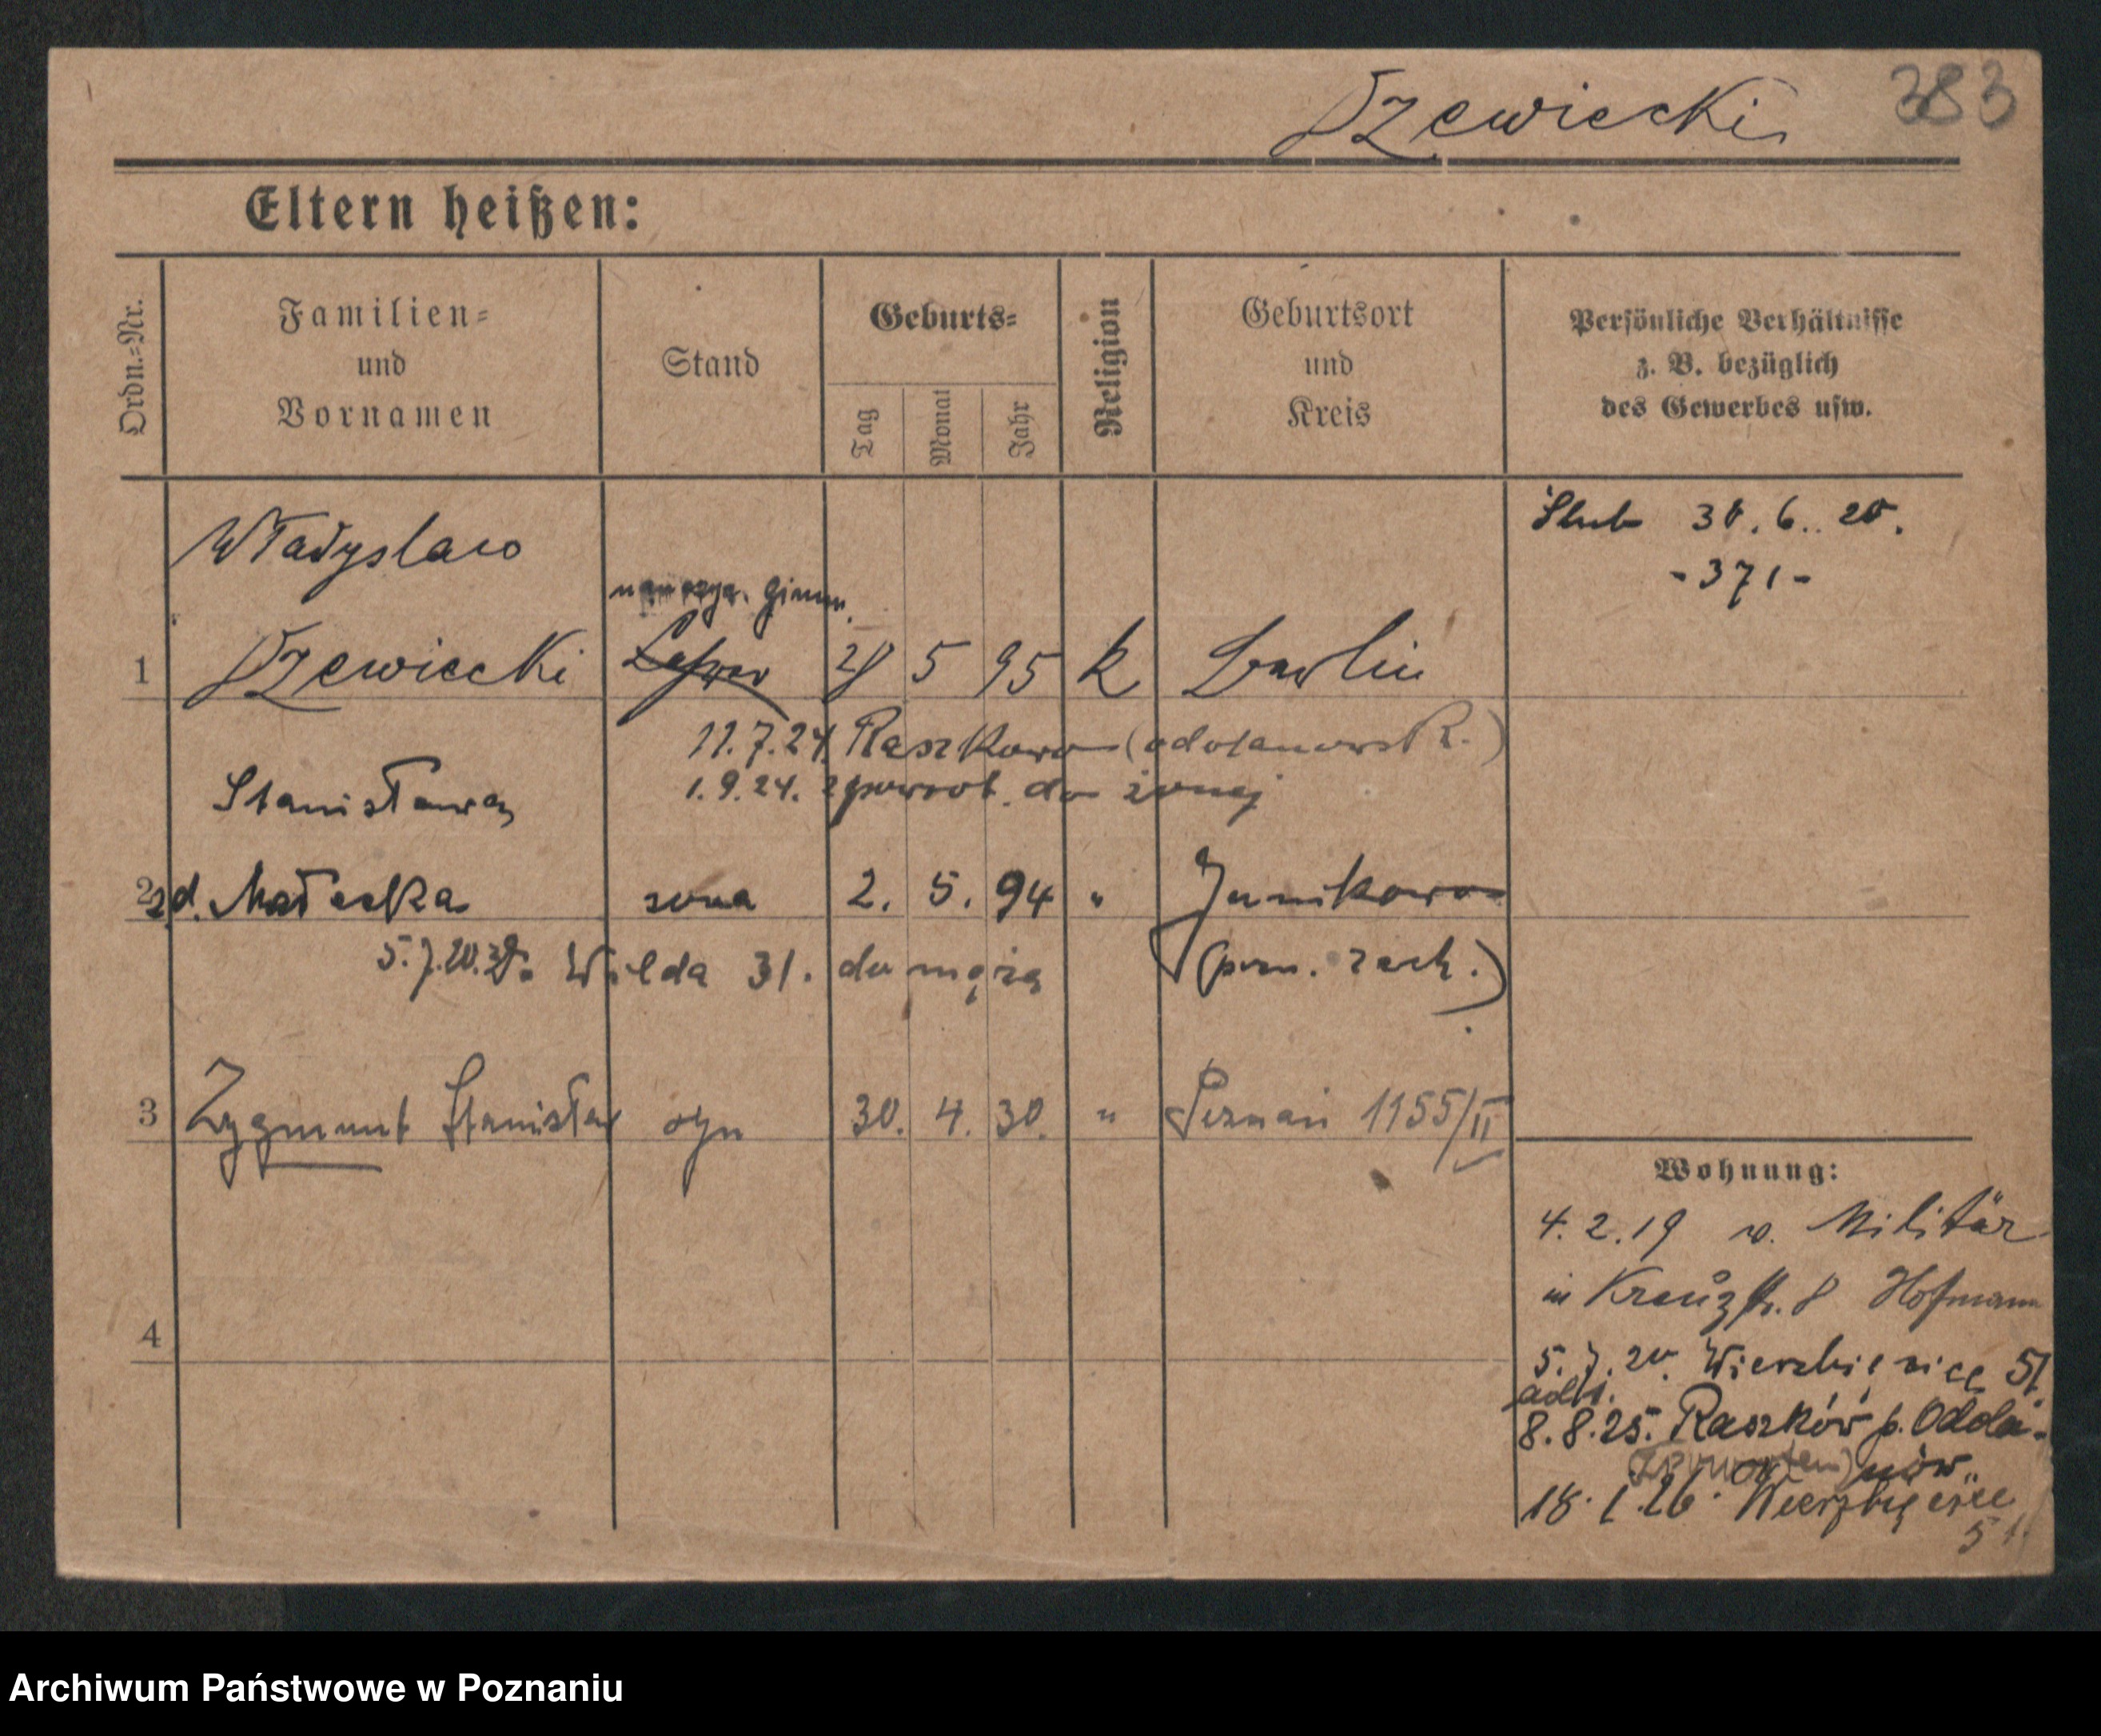 383
Rzewiecki
Eltern heißen:
Ordn.-Nr.
Familien-
und
Vornamen
Stand
Geburts-
Tag
Monat
Jahr
Religion
Geburtsort
und
Kreis
Persönliche Verhältnisse
z. B. bezüglich
des Gewerbes usw.
Władysław
Ślub 30.6.20.
-371-
gimn.
1 Rzewiecki 28 5 95 k Berlin
11.7.24. Raszkowo (odolanowsk.)
1.9.24. zpowrot. do żonej
Stanisława
2 zd. Małecka żona 2. 5. 94 " Junikowo
5.7.20. Wilda 31. do męża (pozn. zach.)
3 Zygmunt Stanisław syn 30. 4. 30. " Poznań 1155/II
4
Wohnung:
4.2.19 v. Militär
in Kreuzstr. 8 Hofmann
5.7.20. Wierzbięcice 51
adls.
8.8.25. Raszków p. Odola-
nów
18.1.26. Wierzbięcice
51.
Archiwum Państwowe w Poznaniu